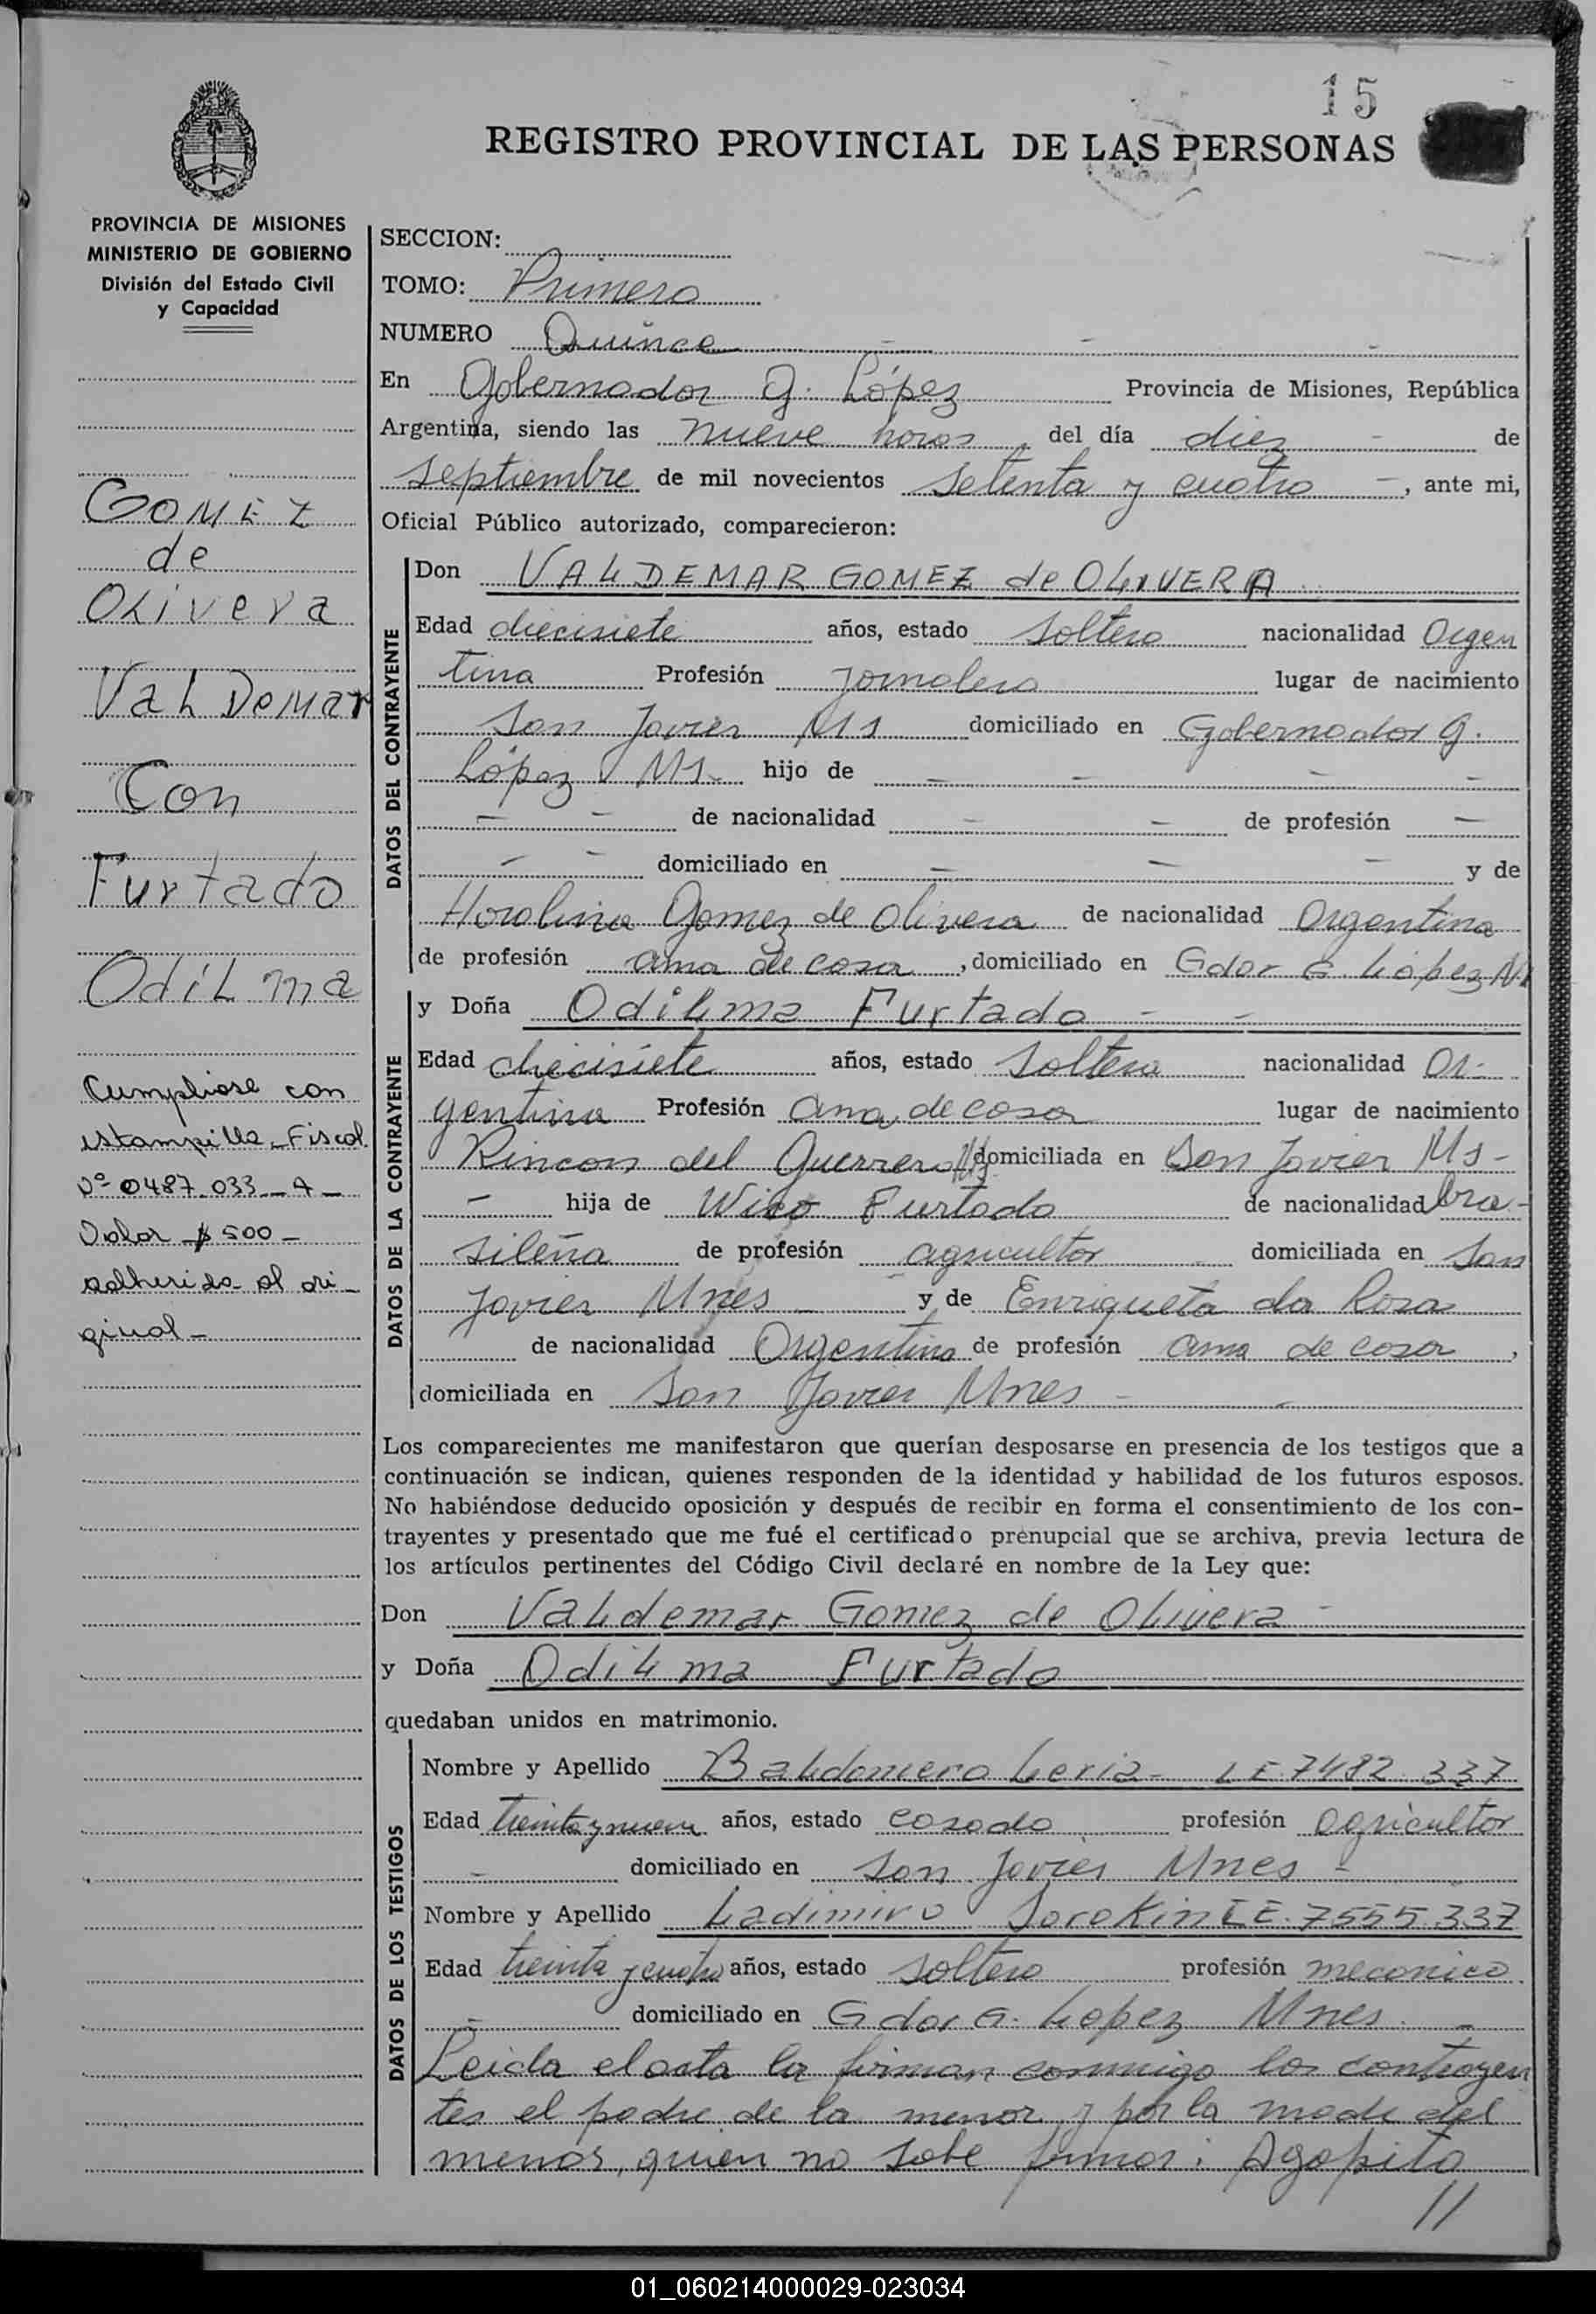 15
REGISTRO PROVINCIAL DE LAS PERSONAS
PROVINCIA DE MISIONES
MINISTERIO DE GOBIERNO
División del Estado Civil
y Capacidad
GOMEZ
de
OLivera
VaLDemar
Con
Furtado
OdiLma
Cumpliose con
estampilla Fiscal
Nº 0487.033 - A -
Valor $ 500 -
adherida al ori-
ginal -
SECCION:
TOMO: Primero
NUMERO Quince - - -
En Gobernador G. López Provincia de Misiones, República
Argentina, siendo las nueve horas, del día diez - de
septiembre de mil novecientos setenta y cuatro -, ante mi,
Oficial Público autorizado, comparecieron:
DATOS DEL CONTRAYENTE
Don VALDEMAR GOMEZ de OLIVERA
Edad diecisiete años, estado soltero nacionalidad Argen
tina Profesión Jornalero lugar de nacimiento
San Javier Ms domiciliado en Gobernador G.
López Ms- hijo de - - - -
- - de nacionalidad - - de profesión -
- - domiciliado en - - - y de
Horolina Gomez de Olivera de nacionalidad Argentina
de profesión ama de casa, domiciliado en Gdor G. López Ms
DATOS DE LA CONTRAYENTE
y Doña OdiLma Furtado - -
Edad diecisiete años, estado soltera nacionalidad Ar-
gentina Profesión Ama de casa lugar de nacimiento
Rincon del Guerrero Ms domiciliada en San Javier Ms -
- hija de Wico Furtado de nacionalidad bra-
sileña de profesión agricultor domiciliada en San
Javier Mnes - y de Enriqueta da Rosa
de nacionalidad Argentina de profesión ama de casa,
domiciliada en San Javier Mnes - -
Los comparecientes me manifestaron que querían desposarse en presencia de los testigos que a
continuación se indican, quienes responden de la identidad y habilidad de los futuros esposos.
No habiéndose deducido oposición y después de recibir en forma el consentimiento de los con-
trayentes y presentado que me fué el certificado prenupcial que se archiva, previa lectura de
los artículos pertinentes del Código Civil declaré en nombre de la Ley que:
Don VaLdemar Gomez de OLivera -
y Doña OdiLma Furtado
quedaban unidos en matrimonio.
DATOS DE LOS TESTIGOS
Nombre y Apellido BaLdomero Leria - LE 7482.337
Edad treinta y nueve años, estado casado profesión agricultor
- domiciliado en San Javier Mnes -
Nombre y Apellido Ladimiro Sorokin LE. 7555.337
Edad treinta y cuatro años, estado soltero profesión mecanico
- domiciliado en Gdor G. Lopez Mnes. -
Leida el acta la firman conmigo los contrayen
tes el padre de la menor y por la madre del
menor, quien no sabe firmar: Agapito
//
01_060214000029-023034